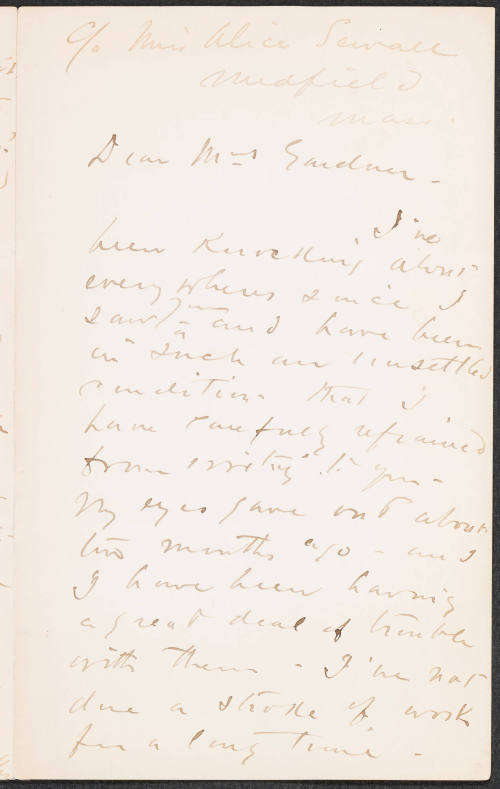 c/o Miss Alice Sewall
Medfield
Mass.
Dear Mrs Gardner -
I've
been knocking about
everywhere since I
saw you and have been
in such an unsettled
condition - that I
have carefully refrained
from writing to you -
My eyes gave out about
two months ago - and
I have been having
a great deal of trouble
with them - I've not
done a stroke of work
for a long time -